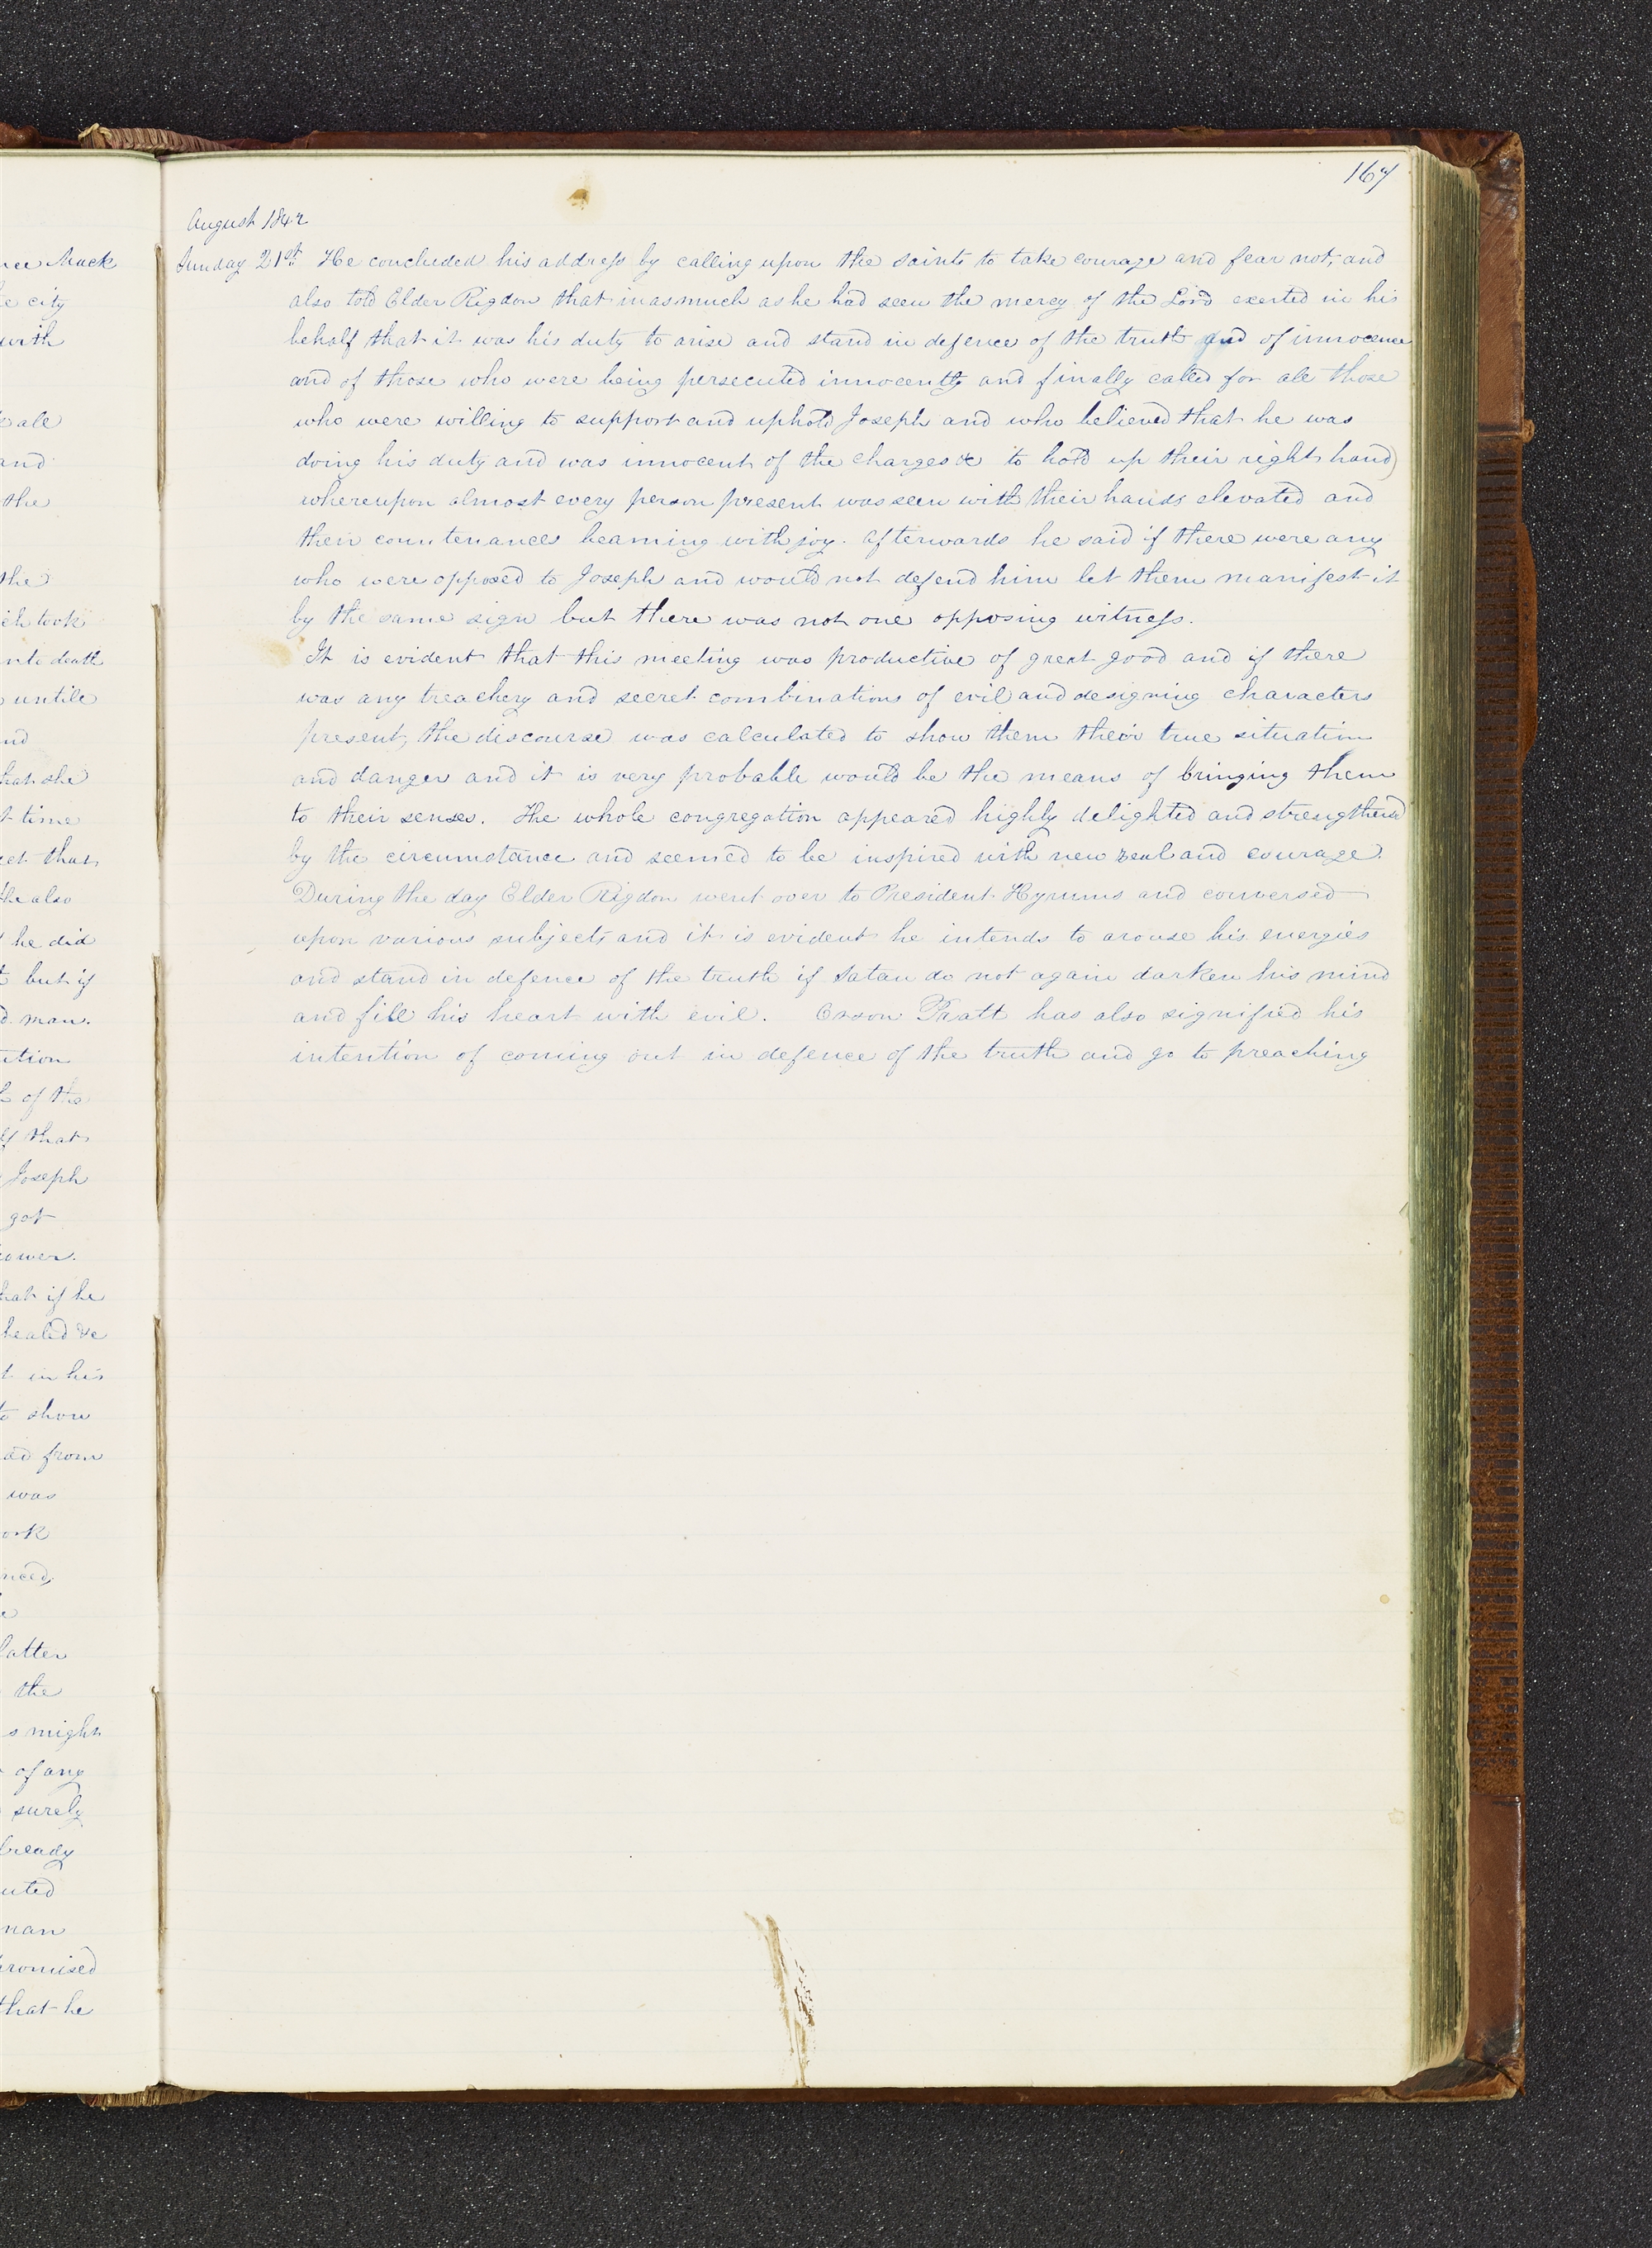 167
August 1842
Sunday 21st. He concluded his address by calling upon the saints to take courage and fear not, and
also told Elder Rigdon that inasmuch as he had seen the mercy of the Lord exerted in his
behalf that it was his duty to arise and stand in defence of the truth and of innocence
and of those who were being persecuted innocently and finally called for all those
who were willing to support and uphold Joseph and who believed that he was
doing his duty and was innocent of the charges &c to hold up their right hand)
whereupon almost every person present was seen with their hands elevated and
their countenances beaming with joy. Afterwards he said if there were any
who were opposed to Joseph and would not defend him let them manifest it
by the same sign but there was not one opposing witness.
It is evident that this meeting was productive of great good and if there
was any treachery and secret combinations of evil and designing characters
present, the discourse was calculated to show them their true situation
and danger and it is very probable would be the means of bringing them
to their senses. The whole congregation appeared highly delighted and strengthened
by the circumstance and seemed to be inspired with new zeal and courage.
During the day Elder Rigdon went over to President Hyrums and conversed
upon various subjects and it is evident he intends to arouse his energies
and stand in defence of the truth if Satan do not again darken his mind
and fill his heart with evil. Orson Pratt has also signified his
intention of coming out in defence of the truth and go to preaching
Mack
city
with
all
and
the
the
took
death
untile
she
time
that
also
he did
but if
man.
of the
that
Joseph
got
if he
healed &c
in his
show
from
was
latter
the
might
of any
surely
that he